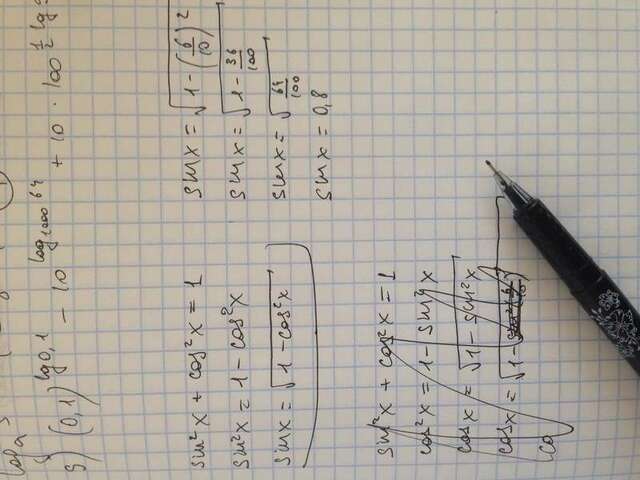 log a
g) (0,1)^lg 0,1 - 10^log₁₀₀₀ 64 + 10 · 100^½ lg
sin²x + cos²x = 1
sin²x = 1 - cos²x
sinx = √1 - cos²x
sinx = √1 - (6/10)²
sinx = √1 - 36/100
sinx = √64/100
sinx = 0,8
sin²x + cos²x = 1
cos²x = 1 - sin²x
cosx = √1 - sin²x
cosx = √1 - (6/10)²
co